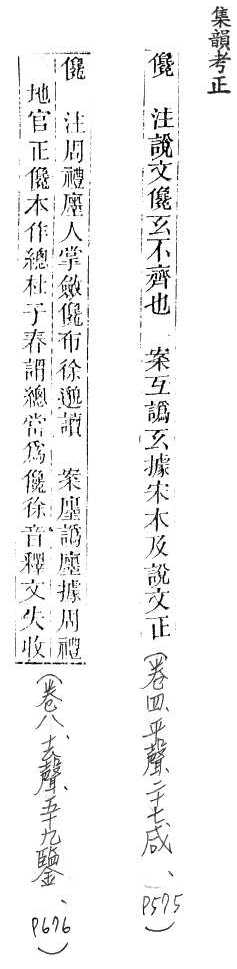 集韻考正
儳　注說文儳玄不齊也　案互譌玄據宋木及說文正(卷四、平聲、二十七咸、P575)
儳　注周禮廛人掌斂儳布徐邈讀　案廛譌廛據周禮
地官正儳木作總杜子春謂總當爲儳徐音釋文失收(卷八、去聲、五十九鑑、P676)